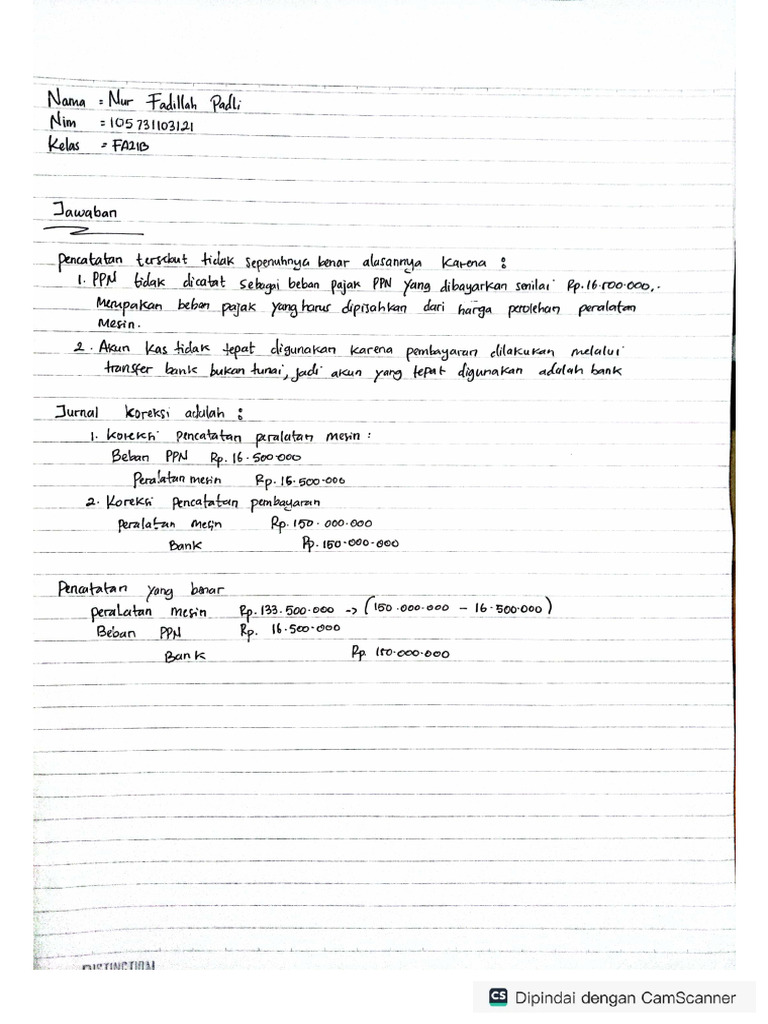 Nama = Nur Fadillah Padli
Nim = 105731103121
Kelas = FA21B
Jawaban
Pencatatan tersebut tidak sepenuhnya benar alasannya karena :
1. PPN tidak dicatat sebagai beban pajak PPN yang dibayarkan senilai Rp.16.500.000,.
Merupakan beban pajak yang harus dipisahkan dari harga perolehan peralatan
Mesin.
2. Akun kas tidak tepat digunakan karena pembayaran dilakukan melalui
transfer bank bukan tunai, jadi akun yang tepat digunakan adalah bank
Jurnal koreksi adalah :
1. koreksi pencatatan peralatan mesin :
Beban PPN Rp. 16.500.000
Peralatan mesin Rp. 16.500.000
2. Koreksi Pencatatan pembayaran
peralatan mesin Rp. 150.000.000
Bank Rp. 150.000.000
Pencatatan yang benar
peralatan mesin Rp. 133.500.000 -> (150.000.000 - 16.500.000)
Beban PPN Rp. 16.500.000
Bank Rp. 150.000.000
DISTINCTION
CS Dipindai dengan CamScanner